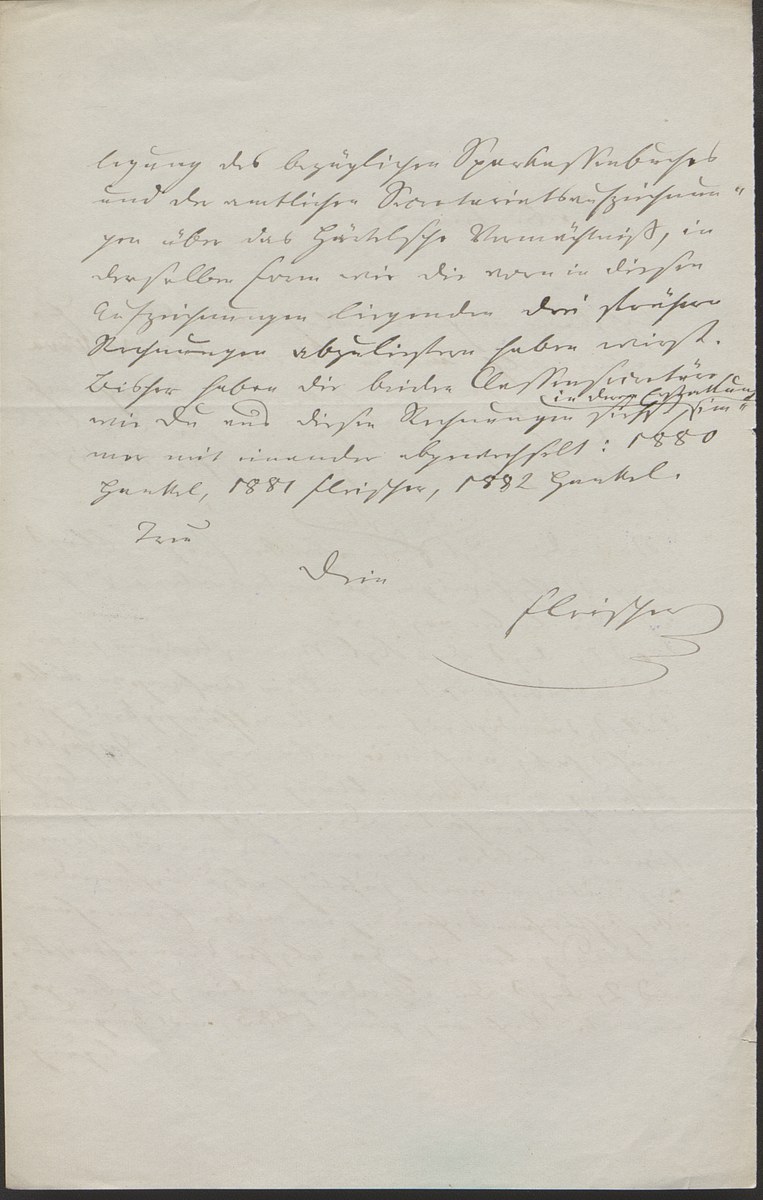 legung des bezüglichen Sparkassenbuches
und der amtlichen Secretariatsaufzeichnun-
gen über das Härtelsche Vermächtniß, in
derselben Form wie die vorn in diesen
Aufzeichnungen liegenden drei früheren
Rechnungen abzuliefern haben wirst.
Bisher haben die beiden Classensecretäre
in deren Erstattung
wie Du aus diesen Rechnungen siehst im-
mer mit einander abgewechselt: 1880
Hankel, 1881 Fleischer, 1882 Hankel.
Treu
Dein
Fleischer